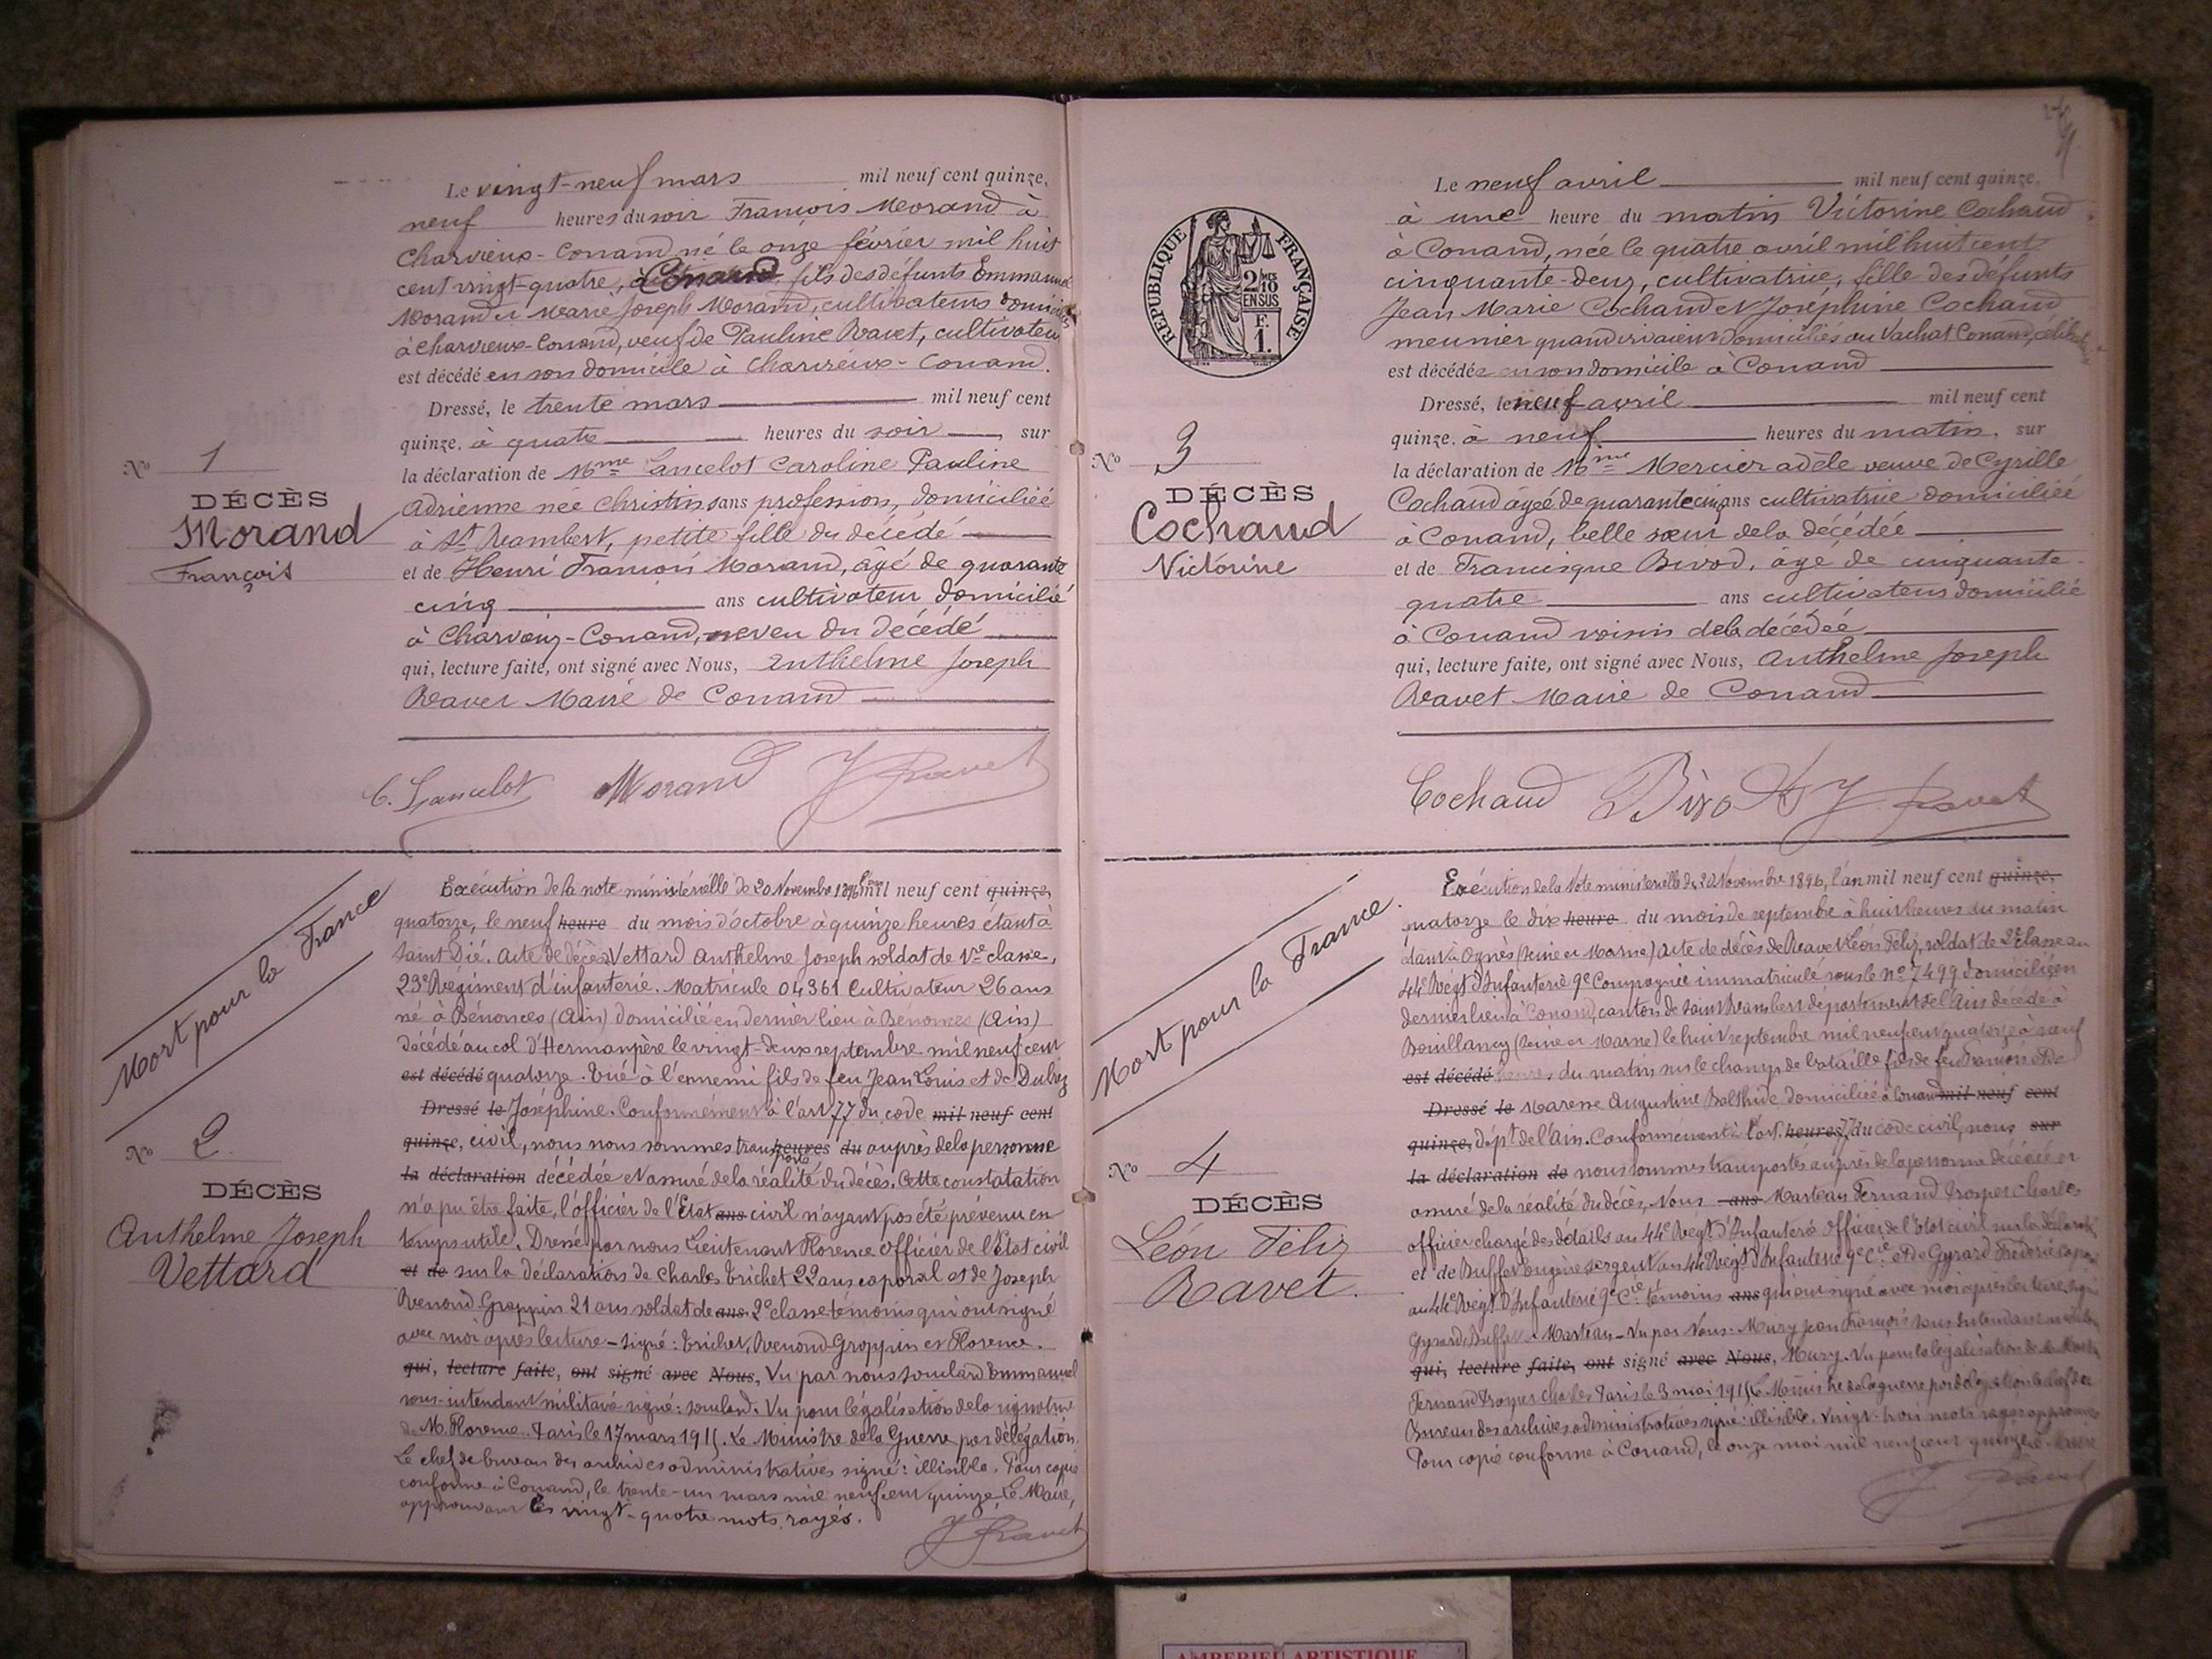 Le vingt-neuf mars mil neuf cent quinze,
neuf heures du soir François Morand à
Charvieux-Conand né le onze février mil huit
cent vingt-quatre, à Conand, fils des défunts Emmanuel
Morand et Marie Joseph Morand, cultivateurs domiciliés
à Charvieux-Conand, veuf de Pauline Ravet, cultivateur
est décédé en son domicile à Charvieux-Conand.
Dressé, le trente mars mil neuf cent
quinze, à quatre heures du soir, sur
la déclaration de Mme Lancelot Caroline Pauline
Adrienne née Christin sans profession, domiciliée
à St Rambert, petite fille du décédé
et de Henri François Morand, âgé de quarante
cinq ans cultivateur domicilié
à Charvieux-Conand, neveu du décédé
qui, lecture faite, ont signé avec Nous, Anthelme Joseph
Ravet Maire de Conand
No 1
DÉCÈS
Morand
François
C. Lancelot Morand J Ravet
Mort pour la France
No 2
DÉCÈS
Anthelme Joseph
Vettard
Exécution de la note ministérielle de 20 Novembre 1896, l'an mil neuf cent quinze,
quatorze, le neuf heure du mois d'octobre à quinze heures étant à
Saint Dié. Acte de décès Vettard Anthelme Joseph soldat de 1re classe,
23e Régiment d'infanterie. Matricule 04361 Cultivateur 26 ans
né à Bénonces (Ain) domicilié en dernier lieu à Bénonces (Ain)
décédé au col d'Hermanpère le vingt-deux septembre mil neuf cent
est décédé quatorze. Tué à l'ennemi fils de feu Jean Louis et de
Dressé le Joséphine. Conformément à l'art 77 du code mil neuf cent
quinze, civil, nous nous sommes transporté heures du auprès de la personne
la déclaration décédée et assuré de la réalité du décès. Cette constatation
n'a pu être faite, l'officier de l'État ans civil n'ayant pas été prévenu en
temps utile. Dressé par nous Lieutenant Florence officier de l'État civil
et de sur la déclaration de Charles Trichet 22 ans caporal et de Joseph
Renond Groppin 21 ans soldat de ans 2e classe témoins qui ont signé
avec moi après lecture - signé: Trichet, Renond Groppin et Florence.
qui, lecture faite, ont signé avec Nous, Vu par nous Soulard Emmanuel
sous-intendant militaire signé: Soulard. Vu pour légalisation de la signature
de M. Florence. Paris le 17 mars 1915. Le Ministre de la Guerre par délégation.
Le chef de bureau des archives administratives signé: illisible. Pour copie
conforme à Conand, le trente-un mars mil neuf cent quinze, Le Maire,
approuvant les vingt-quatre mots rayés.
J Ravet
RÉPUBLIQUE FRANÇAISE
2/10 EN SUS
F. 1.
Le neuf avril mil neuf cent quinze,
à une heure du matin Victorine Cochaud
à Conand, née le quatre avril mil huit cent
cinquante-deux, cultivatrice, fille des défunts
Jean Marie Cochaud et Joséphine Cochaud
meunier quand vivaient domiciliés au Vachat Conand,
est décédée en son domicile à Conand
Dressé, le neuf avril mil neuf cent
quinze, à neuf heures du matin, sur
la déclaration de Mme Mercier Adèle veuve de Cyrille
Cochaud âgée de quarante cinq ans cultivatrice domiciliée
à Conand, belle sœur de la décédée
et de Francisque Bivod, âgé de cinquante
quatre ans cultivateur domicilié
à Conand voisin de la décédée
qui, lecture faite, ont signé avec Nous, Anthelme Joseph
Ravet Maire de Conand
No 3
DÉCÈS
Cochaud
Victorine
Cochaud J. Ravet
Mort pour la France.
No 4
DÉCÈS
Léon Félix
Ravet.
Exécution de la Note ministérielle du 20 Novembre 1896, l'an mil neuf cent quinze,
quatorze le dix heure du mois de septembre à huit heures du matin
étant à Ognès (Seine et Marne) acte de décès de Ravet Léon Félix, soldat de 2e classe au
44e Régt d'Infanterie 9e Compagnie immatriculé sous le no 7499 domicilié en
dernier lieu à Conand, canton de Saint Rambert département de l'Ain décédé à
Bouillancy (Seine et Marne) le huit septembre mil neuf cent quatorze à neuf
est décédé heures du matin sur le champ de bataille fils de feu François et de
Dressé le Augustine domiciliée à Conand mil neuf cent
quinze, dépt de l'Ain. Conformément à l'art. heures 77 du code civil, nous sur
la déclaration de nous sommes transportés auprès de la personne décédée et
assuré de la réalité du décès, Nous ans Marteau Fernand Prosper Charles
officier chargé des détails au 44e Régt d'Infanterie officier de l'État civil sur la déclaration
et de Buffet Eugène sergent au 44e Régt d'Infanterie 9e Cie et de Gyrard Frédéric
au 44e Régt d'Infanterie 9e Cie témoins ans qui ont signé avec moi après lecture, signé
Gyrard, Buffet, Marteau - Vu par Nous: Mury Jean François sous Intendant
qui, lecture faite, ont signé avec Nous, Mury. Vu pour la légalisation de
Fernand Prosper Charles Paris le 3 mai 1915 Le Ministre de la guerre par délégation le chef du
Bureau des archives administratives signé: illisible. Vingt-trois mots rayés approuvés
Pour copie conforme à Conand, le onze mai mil neuf cent quinze
J Ravet
AMBERIEU ARTISTIQUE